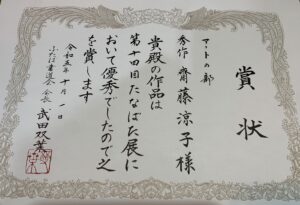 賞状
アートの部
秀作 齋藤涼子様
貴殿の作品は
第十四回たなばた展に
おいて優秀でしたので之
を賞します
令和五年十月一日
ふたば書道会 会長 武田双葉